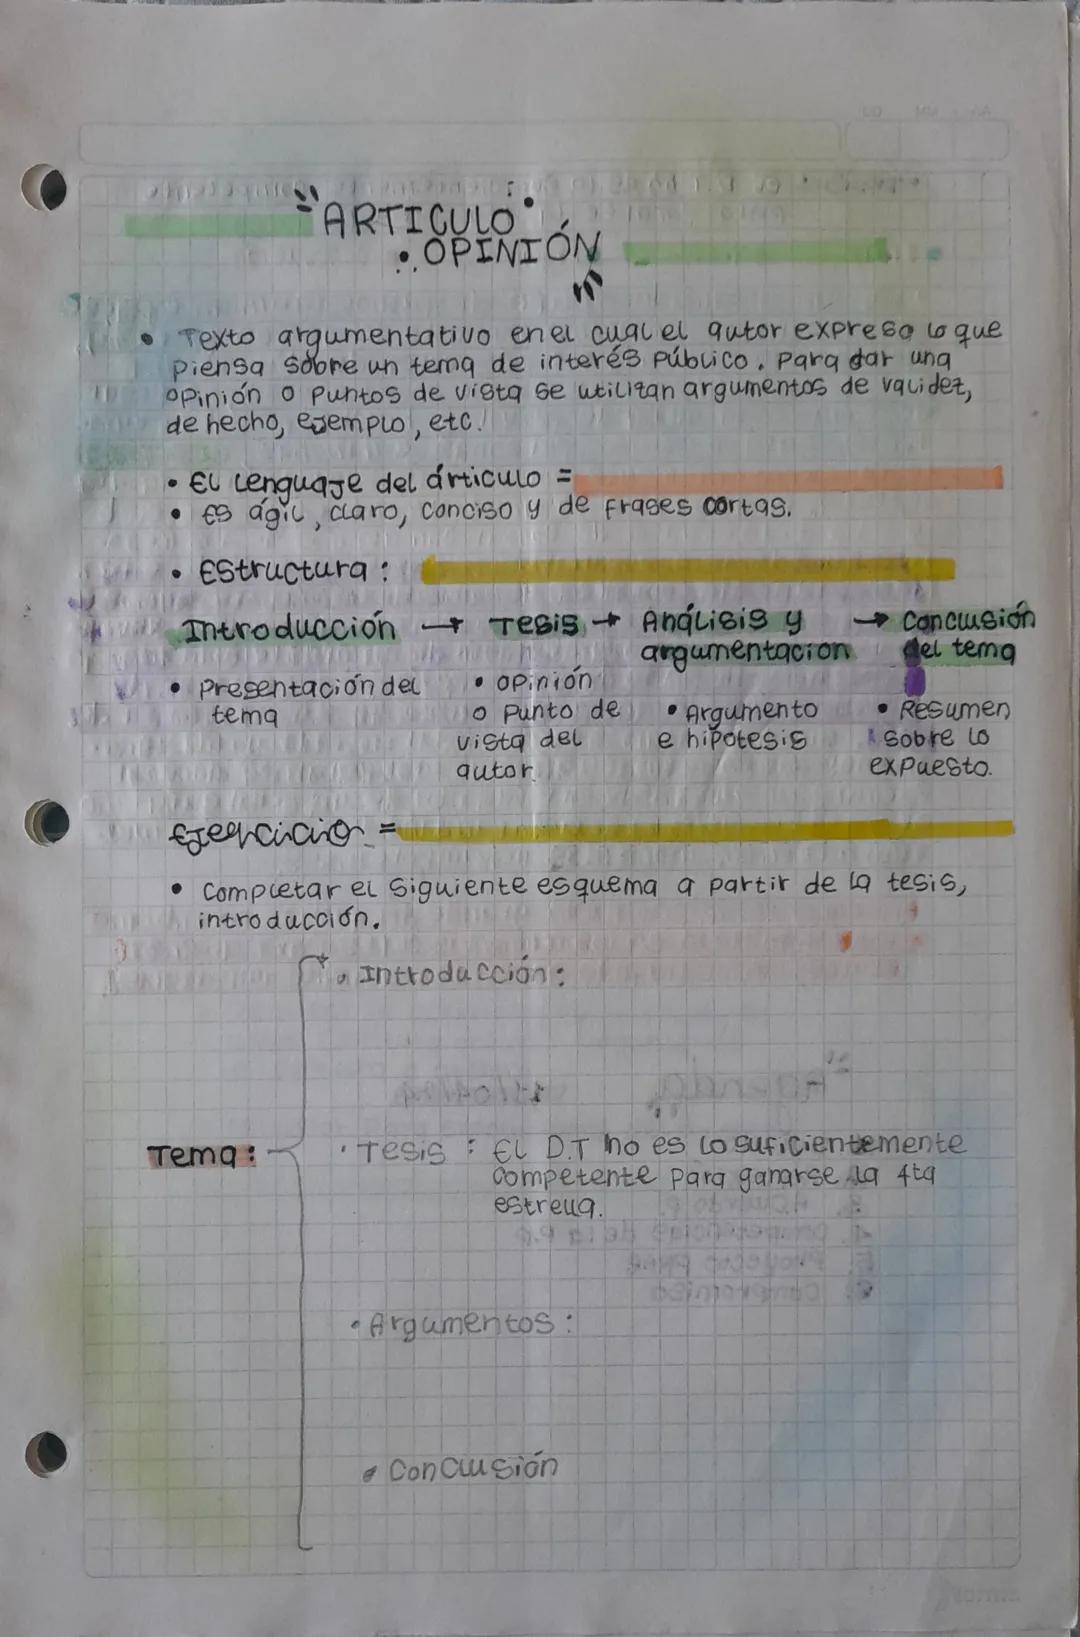 ARTICULO
OPINIÓN
• Texto argumentativo en el cual el autor expresa lo que
piensa sobre un tema de interés público. Para dar una
opinión o puntos de vista se utilizan argumentos de validez,
de hecho, ejemplo, etc.
• El lenguaje del árticulo =
• Es ágil, claro, conciso y de frases cortas.
• Estructura:
Introducción → Tesis → Análisis y → Conclusión
argumentacion del tema
• Presentación del • opinión
tema o punto de • Argumento • Resumen
vista del e hipotesis sobre lo
autor. expuesto.
Ejercicio =
• Completar el siguiente esquema a partir de la tesis,
introducción.
• Introducción:
Tema: • Tesis: El D.T no es lo suficientemente
competente para ganarse la 4ta
estrella.
• Argumentos:
• Conclusión